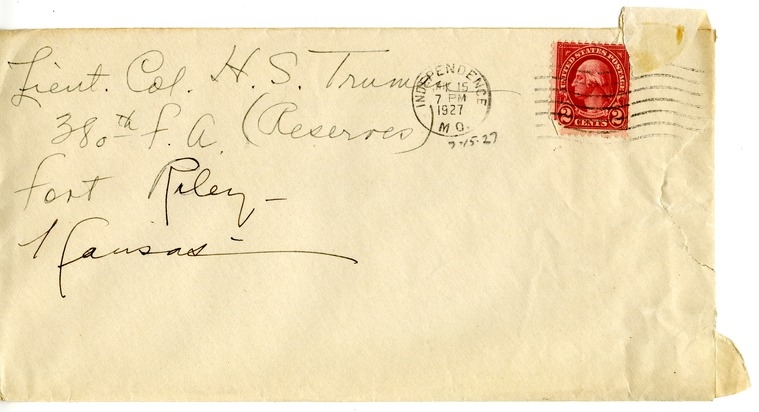 Lieut. Col. H. S. Truman
380th F. A. (Reserves)
Fort Riley -
Kansas -
INDEPENDENCE
15
7 PM
1927
MO.
7-15-27
UNITED STATES POSTAGE
2 CENTS 2